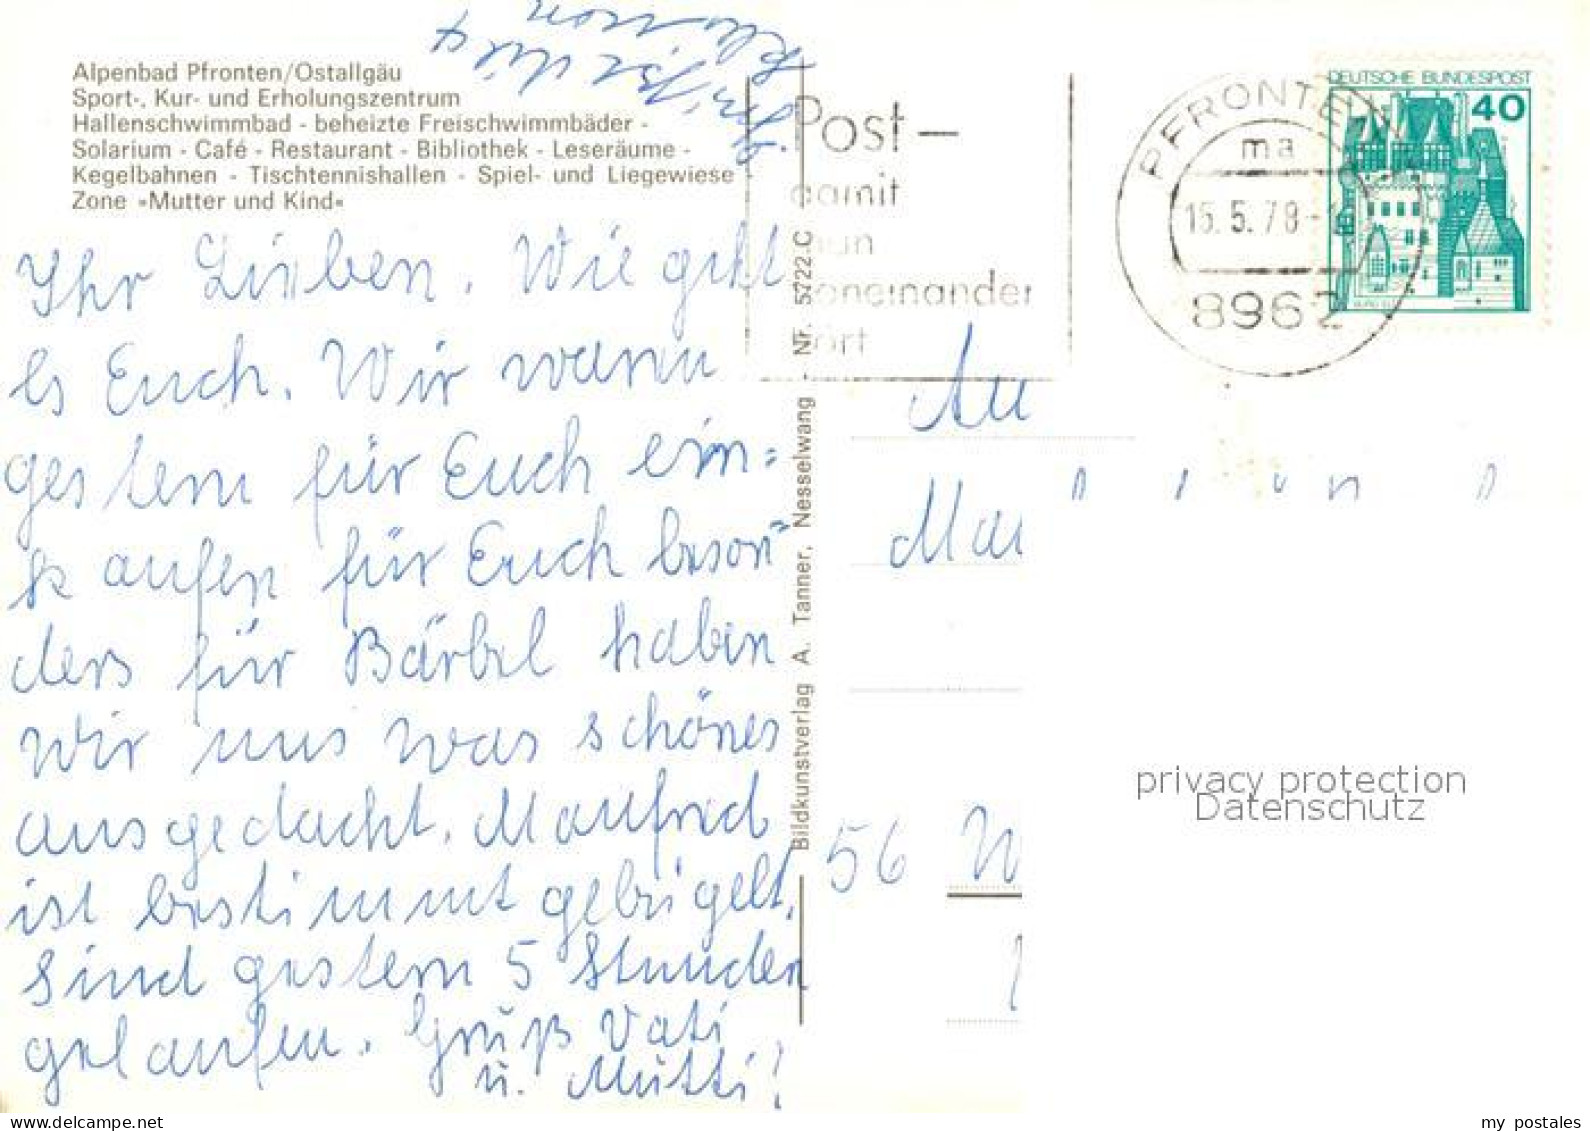 Alpenbad Pfronten/Ostallgäu
Sport-, Kur- und Erholungszentrum
Hallenschwimmbad - beheizte Freischwimmbäder -
Solarium - Café - Restaurant - Bibliothek - Leseräume -
Kegelbahnen - Tischtennishallen - Spiel- und Liegewiese -
Zone »Mutter und Kind«
Ihr Lieben. Wie geht
es Euch. Wir waren
gestern für Euch ein=
kaufen für Euch beson"
ders für Bärbel haben
wir uns was schönes
ausgedacht. Manfred
ist bestimmt gebügelt,
sind gestern 5 Stunden
gelaufen. Gruß Vati
u. Mutti!
Bildkunstverlag A. Tanner, Nesselwang - Nr. 5722 C
Post-
damit
man
voneinander
hört
PFRONTEN
ma
15.5.78
8962
DEUTSCHE BUNDESPOST
40
56 W
privacy protection
Datenschutz
my postales